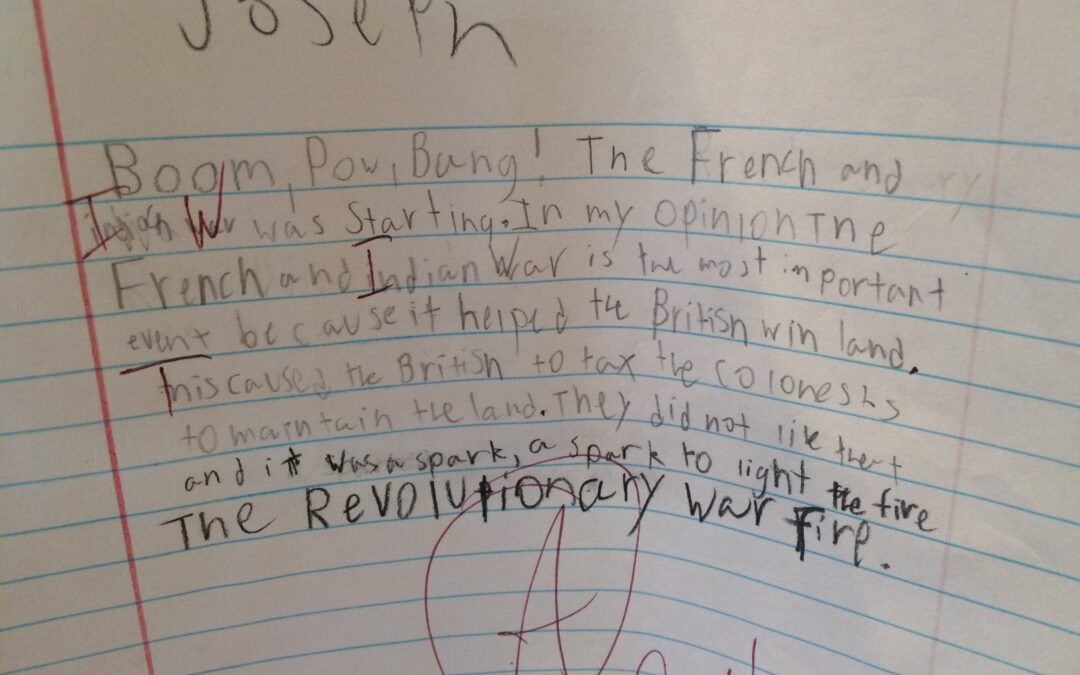 Joseph
Boom, Pow, Bang! The French and
Indian War was Starting. In my opinion The
French and Indian War is the most important
event because it helped the British win land.
This caused the British to tax the Colonests
to maintain the land. They did not like that
and it was a spark, a spark to light the fire
The Revolutionary War Fire.
A